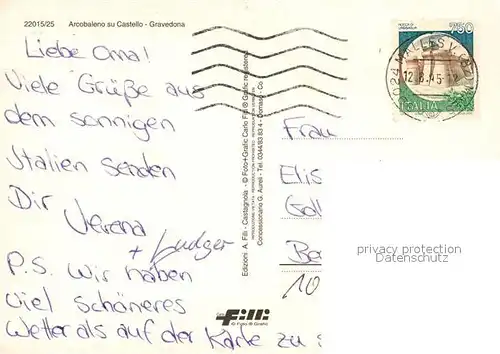 22015/25 Arcobaleno su Castello - Gravedona
Liebe Oma!
Viele Grüße aus
dem sonnigen
Italien senden
Dir Verena
+ Ludger
P.S. Wir haben
viel schöneres
Wetter als auf der Karte zu s
Edizioni A. Filli - Castagnola - © Foto+Grafic Carlo Filli ® Grafic registered
RIPRODUZIONE VIETATA - REPRODUCTION PROHIBITED - REPRODUKTION VERBOTEN
Concessionario G. Aureli - Tel. 0344/83 83 4 - Domaso - Co
filli
© Foto ® Grafic
750
ITALIA
12.8.
Frau
Elis
Gall
Be
10
privacy protection
Datenschutz